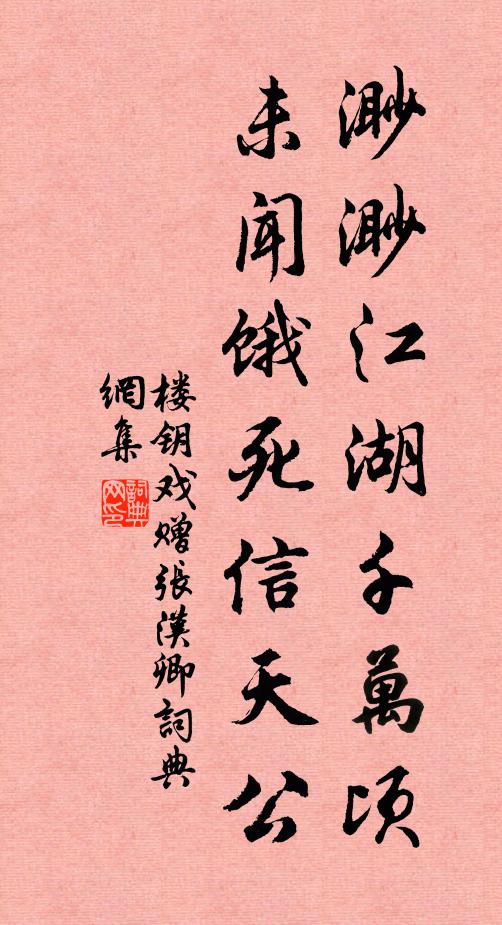 渺渺江湖千萬頃
未聞餓死信天公
楼钥戏赠張漢卿詞典
網集
詞典网印